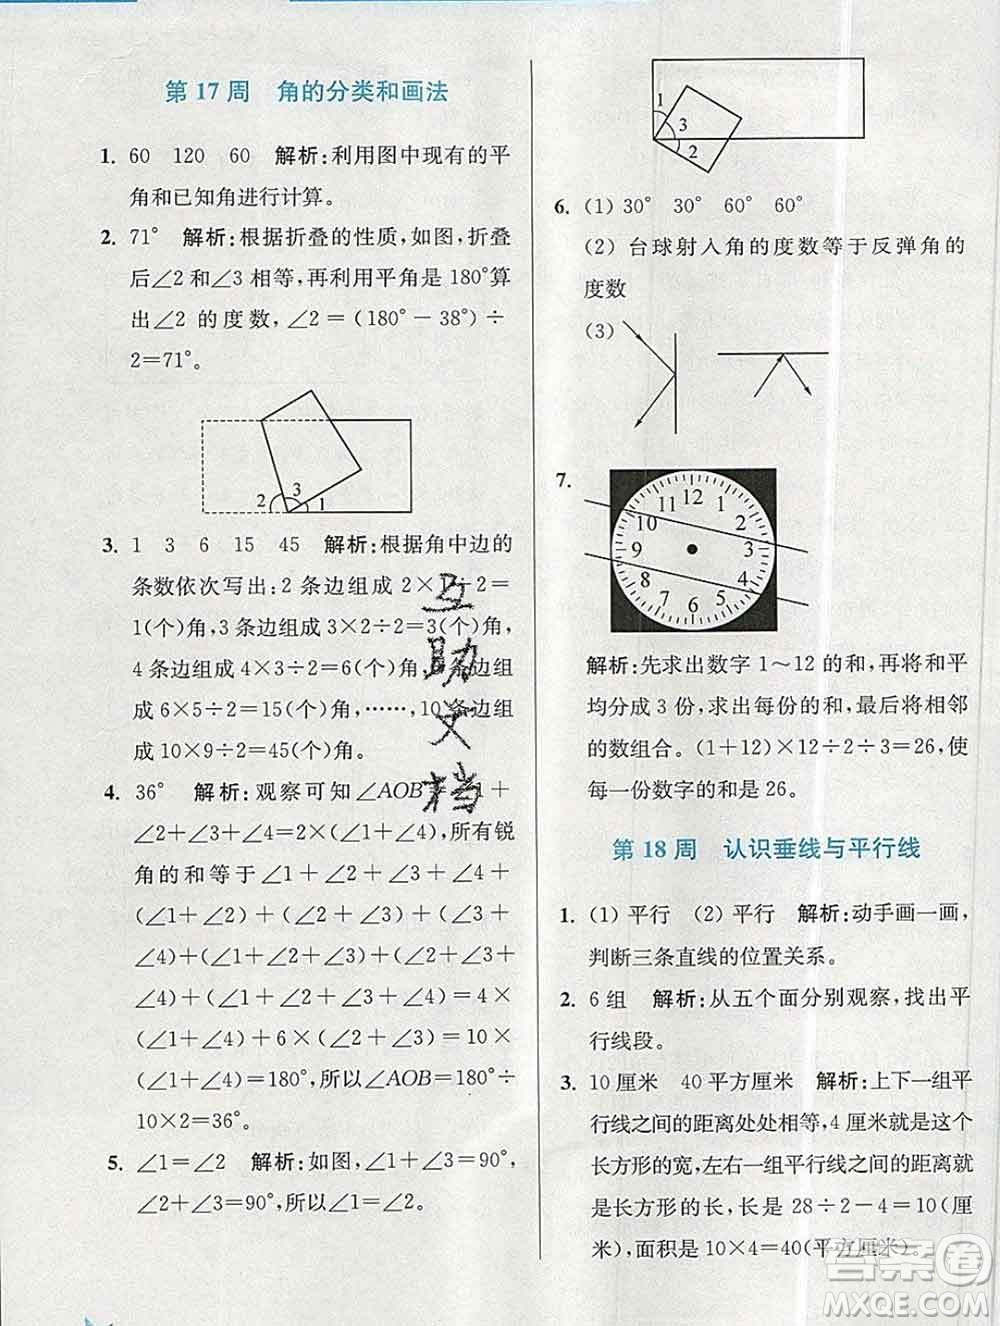 第 17 周　角的分类和画法
1. 60　120　60　解析:利用图中现有的平
角和已知角进行计算。
2. 71°　解析:根据折叠的性质,如图,折叠
后∠2 和∠3 相等,再利用平角是 180°算
出∠2 的度数,∠2＝(180°－38°)÷
2＝71°。
2 3 1
3. 1　3　6　15　45　解析:根据角中边的
条数依次写出:2 条边组成 2×1÷2＝
1(个)角,3 条边组成 3×2÷2＝3(个)角,
4 条边组成 4×3÷2＝6(个)角,6 条边组
成 6×5÷2＝15(个)角,……,10 条边组
成 10×9÷2＝45(个)角。
4. 36°　解析:观察可知∠AOB＝∠1＋
∠2＋∠3＋∠4＝2×(∠1＋∠4),所有锐
角的和等于∠1＋∠2＋∠3＋∠4＋
(∠1＋∠2)＋(∠2＋∠3)＋(∠3＋
∠4)＋(∠1＋∠2＋∠3)＋(∠2＋
∠3＋∠4)＋(∠1＋∠2＋∠3＋∠4)＝4×
(∠1＋∠4)＋6×(∠2＋∠3)＝10×
(∠1＋∠4)＝180°,所以∠AOB＝180°÷
10×2＝36°。
5. ∠1＝∠2　解析:如图,∠1＋∠3＝90°,
∠2＋∠3＝90°,所以∠1＝∠2。
1
3
2
6. (1) 30°　30°　60°　60°
(2) 台球射入角的度数等于反弹角的
度数
(3)
7.
12 1 2 3 4 5 6 7 8 9 10 11
解析:先求出数字 1～12 的和,再将和平
均分成 3 份,求出每份的和,最后将相邻
的数组合。(1＋12)×12÷2÷3＝26,使
每一份数字的和是 26。
第 18 周　认识垂线与平行线
1. (1) 平行　(2) 平行　解析:动手画一画,
判断三条直线的位置关系。
2. 6 组　解析:从五个面分别观察,找出平
行线段。
3. 10 厘米　40 平方厘米　解析:上下一组平
行线之间的距离处处相等,4 厘米就是这个
长方形的宽,左右一组平行线之间的距离就
是长方形的长,长是 28÷2－4＝10(厘
米),面积是 10×4＝40(平方厘米)。
互助文档
答案圈
MXQE.COM